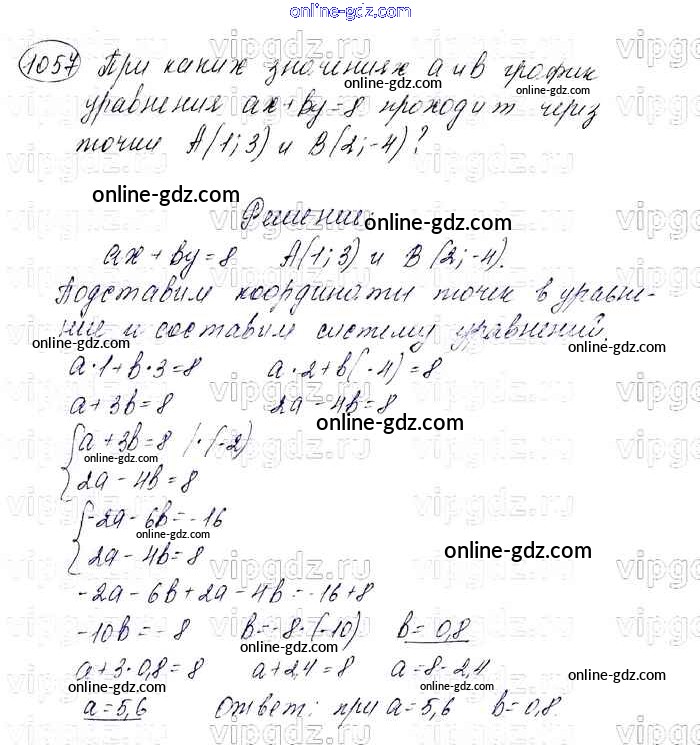 online-gdz.com
1057 При каких значениях a и b график
online-gdz.com
уравнения ax+by=8 проходит через
online-gdz.com
точки A(1;3) и B(2;-4)?
online-gdz.com
Решение:
online-gdz.com
ax+by=8 A(1;3) и B(2;-4).
Подставим координаты точек в уравне-
ние и составим систему уравнений.
online-gdz.com online-gdz.com
a·1+b·3=8 a·2+b(-4)=8
online-gdz.com
a+3b=8 2a-4b=8
online-gdz.com
{a+3b=8 |·(-2)
online-gdz.com
2a-4b=8
{-2a-6b=-16
online-gdz.com
2a-4b=8
online-gdz.com
-2a-6b+2a-4b=-16+8
online-gdz.com
-10b=-8 b=-8:(-10) b=0,8
a+3·0,8=8 a+2,4=8 a=8-2,4
online-gdz.com online-gdz.com
a=5,6 Ответ: при a=5,6 b=0,8.
online-gdz.com
vipgdz.ru